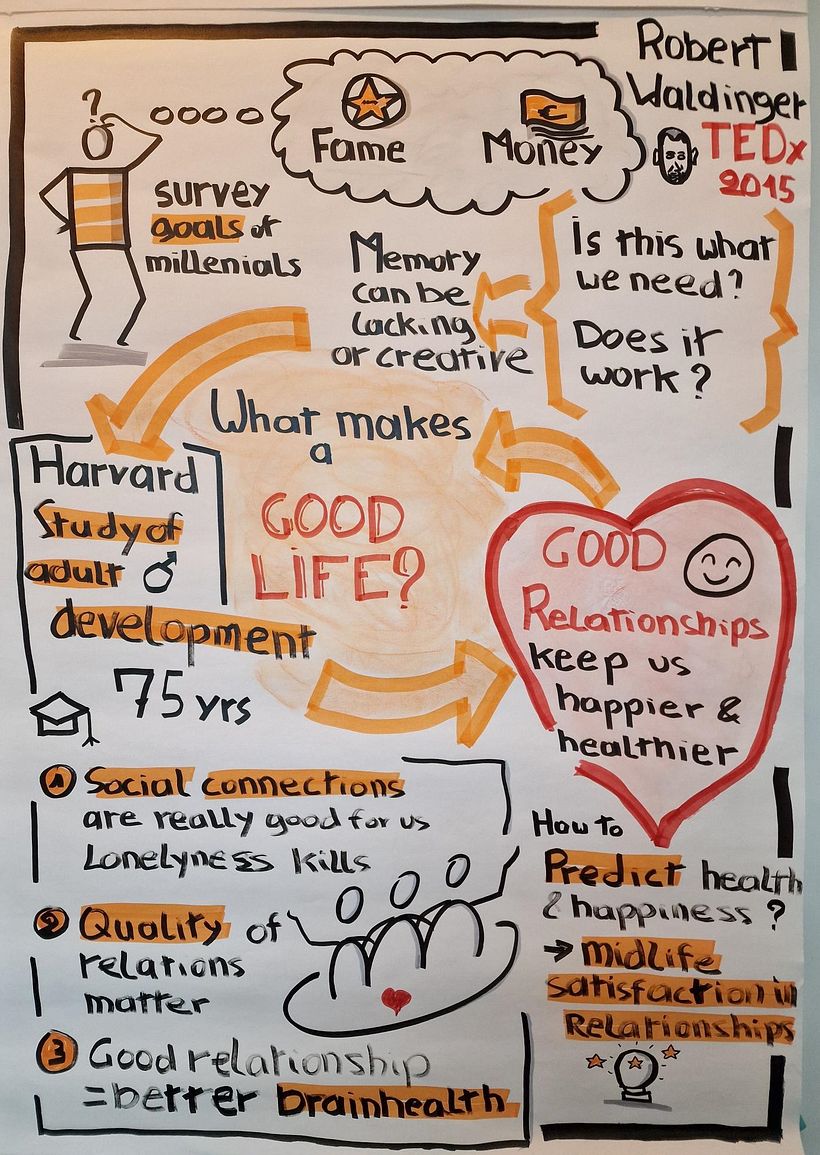 Robert
Waldinger
TEDx
2015
?
Fame
Money
€
survey
goals of
millenials
Memory
can be
lacking
or creative
Is this what
we need?
Does it
work?
What makes
a
GOOD
LIFE?
Harvard
Study of
adult ♂
development
75 yrs
GOOD
Relationships
keep us
happier &
healthier
1 Social connections
are really good for us
Lonelyness kills
2 Quality of
relations
matter
3 Good relationship
=better brainhealth
How to
Predict health
& happiness?
→ midlife
satisfaction in
Relationships